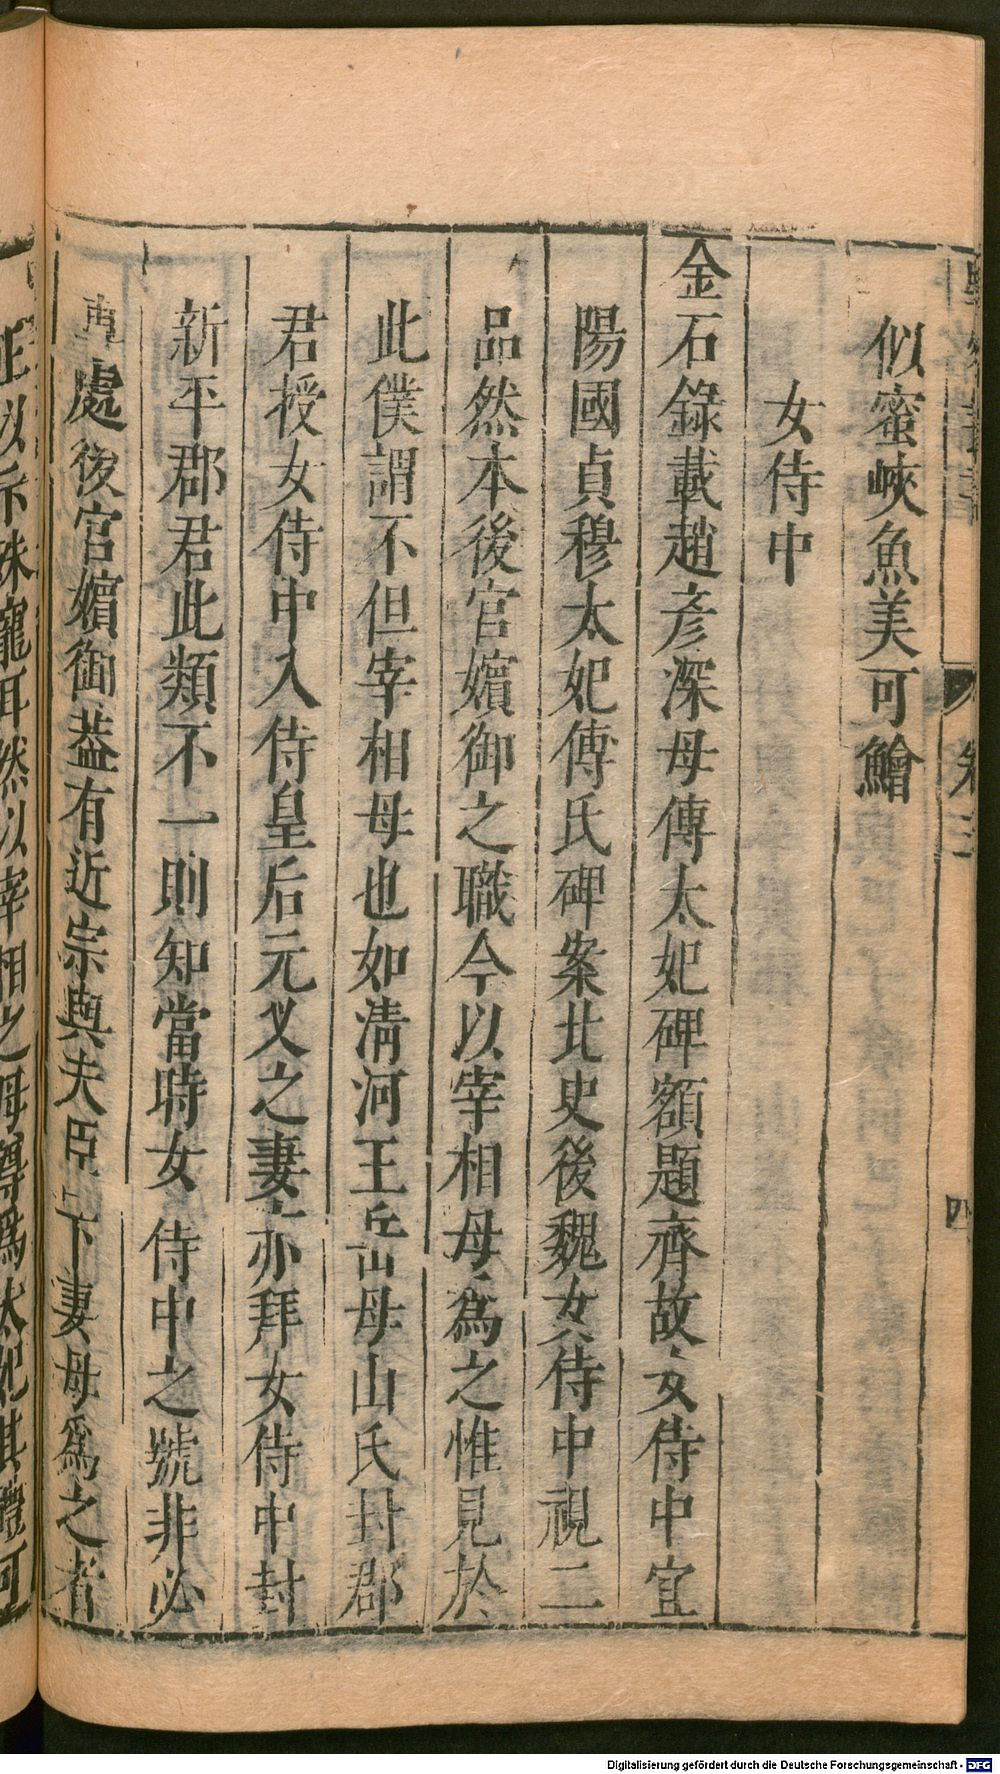 似蜜峽魚美可鱠
女侍中
金石錄載趙彥深母傅太妃碑額題齊故女侍中宜
陽國貞穆太妃傅氏碑案北史後魏女侍中視二
品然本後宮嬪御之職今以宰相母為之惟見於
此僕謂不但宰相母也如淸河王岳母山氏封郡
君授女侍中入侍皇后元义之妻亦拜女侍中封
新平郡君此類不一則知當時女侍中之號非必
專處後宮嬪御葢有近宗與夫臣下妻母爲之者
卷三
四
正以示殊寵耳然以宰相之母尊爲太妃其禮可
Digitalisierung gefördert durch die Deutsche Forschungsgemeinschaft - DFG